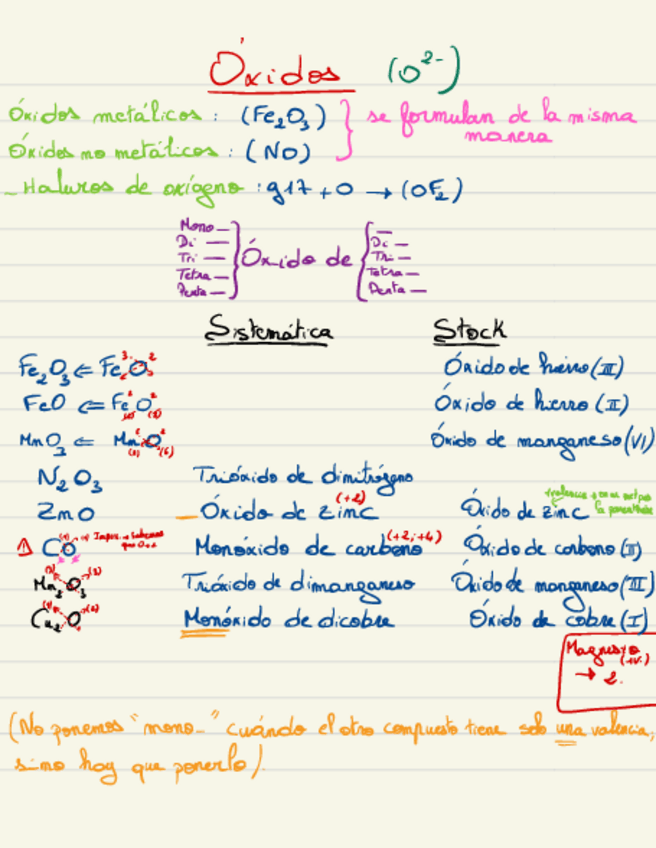 Óxidos (O²⁻)
Óxidos metálicos : (Fe₂O₃) } se formulan de la misma manera
Óxidos no metálicos : (NO)
- Haluros de oxígeno : g17 + O → (OF₂)
Mono —
Di —
Tri —
Tetra —
Penta —
Óxido de
—
Di —
Tri —
Tetra —
Penta —
Sistemática Stock
Fe₂O₃ ⇐ Fe₂O₃ Óxido de hierro (III)
FeO ⇐ Fe O Óxido de hierro (II)
MnO₃ ⇐ Mn O Óxido de manganeso (VI)
N₂O₃ Trióxido de dinitrógeno
ZmO Óxido de zinc (+2) Óxido de zinc
⚠ CO Monóxido de carbono (+2,+4) Óxido de carbono (II)
Mn₂O₃ Trióxido de dimanganeso Óxido de manganeso (III)
Cu₂O Monóxido de dicobre Óxido de cobre (I)
Magnesio
→ 2.
(No ponemos "mono-" cuándo el otro compuesto tiene solo una valencia,
sino hay que ponerlo).